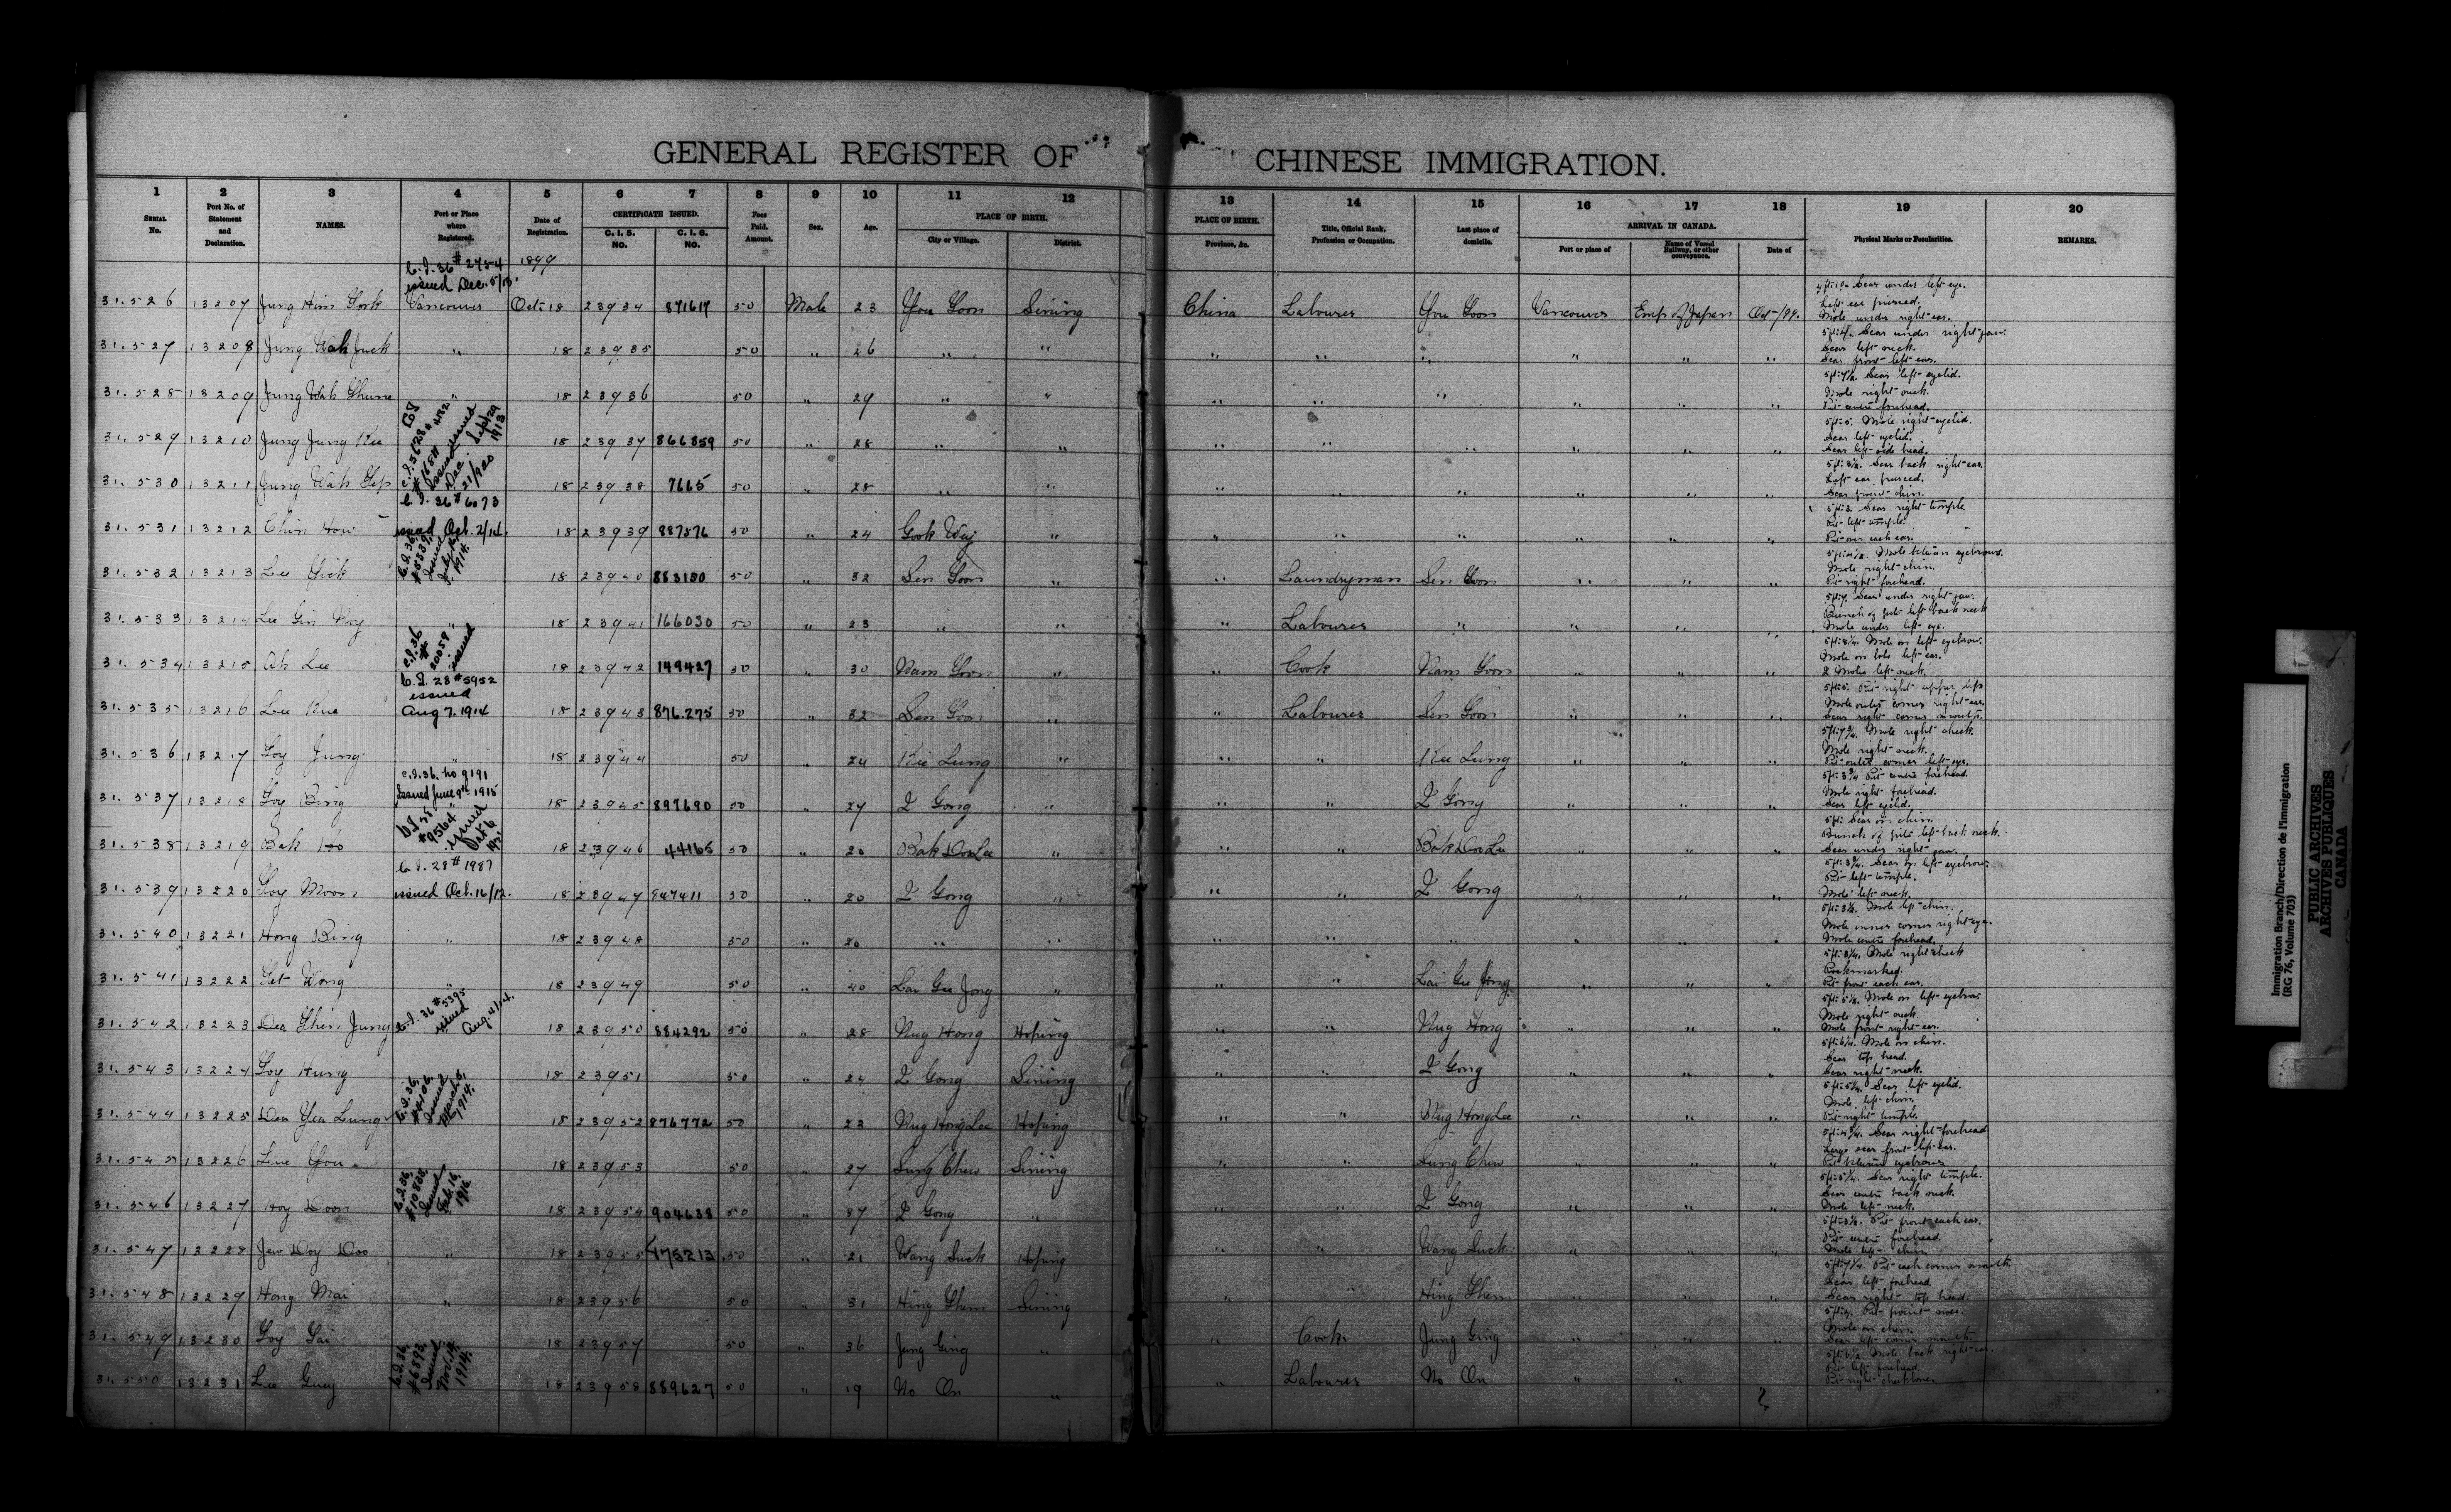 GENERAL REGISTER OF CHINESE IMMIGRATION.
1 2 3 4 5 6 7 8 9 10 11 12 13 14 15 16 17 18 19 20
SERIAL No. Port No. of Statement and Declaration. NAMES. Port or Place where Registered. Date of Registration. CERTIFICATE ISSUED. C. I. 5. NO. C. I. 6. NO. Fees Paid. Amount. Sex. Age. PLACE OF BIRTH. City or Village. District. PLACE OF BIRTH. Province, &c. Title, Official Rank, Profession or Occupation. Last place of domicile. ARRIVAL IN CANADA. Port or place of Name of Vessel Railway, or other conveyance. Date of Physical Marks or Peculiarities. REMARKS.
C.I. 36 # 2454 1899
issued Dec. 5/13.
31.526 13207 Jung Him Gook Vancouver Oct. 18 23934 871617 50 Male 23 You Goon Sining China Labourer You Goon Vancouver Emp of Japan Oct /99. 4ft:10. Scar under left eye. Left ear pierced. Mole under right ear.
31.527 13208 Jung Wah Juck " 18 23935 50 " 26 " " " " " " " " 5ft:4. Scar under right jaw. Scar left neck. Scar front left ear.
31.528 13209 Jung Wah Shune " 18 23936 50 " 29 " " " " " " " " 5ft:7½. Scar left eyelid. Mole right neck. Pit centre forehead.
31.529 13210 Jung Jung Kee 18 23937 866859 50 " 28 " " " " " " " " 5ft:5. Mole right eyelid. Scar left eyelid. Scar left side head.
31.530 13211 Jung Wah Yip 18 23938 7665 50 " 28 " " " " " " " " 5ft:3½. Scar back right ear. Left ear pierced. Scar point chin.
C.I. 36 # 6073
31.531 13212 Chin How issued Oct. 2/14. 18 23939 887576 50 " 24 Gook Way " " " " " " " 5ft:3. Scar right temple. Pit left temple. Pit near each ear.
31.532 13213 Lee Yick C.I. 36, issued 1914. 18 23940 883150 50 " 32 Sen Goon " " Laundryman Sen Goon " " " 5ft:4½. Mole between eyebrows. Mole right chin. Pit right forehead.
31.533 13214 Lee Gin Noy " 18 23941 166030 50 " 23 " " " Labourer " " " " 5ft:7. Scar under right jaw. Bunch of pits left back neck. Mole under left eye.
31.534 13215 Ah Lee C.I. 36 # 20058 issued 18 23942 149427 50 " 30 Nam Goon " " Cook Nam Goon " " " 5ft:8¼. Mole on left eyebrow. Mole on lobe left ear. 2 Moles left neck.
C.I. 28 # 5952
issued
31.535 13216 Lee Kue Aug 7. 1914 18 23943 876.275 50 " 32 Sen Goon " " Labourer Sen Goon " " " 5ft:5. Pit right upper lip. Mole outer corner right ear. Scar right corner mouth.
31.536 13217 Loy Jung " 18 23944 50 " 24 Kee Lung " " " Kee Lung " " " 5ft:7¾. Mole right cheek. Mole right neck. Pit outer corner left eye.
C.I. 36. No 9191
Issued June 9th 1915
31.537 13218 Loy Bing " 18 23945 897690 50 " 27 Z Gong " " " Z Gong " " " 5ft:3¾ Pit centre forehead. Mole right forehead. Scar left eyelid.
31.538 13219 Bak Ho # 9564 issued 18 23946 44165 50 " 20 Bak Don Lee " " " Bak Don Lee " " " 5ft: Scar on chin. Bunch of pits left back neck. Scar under right jaw.
C.I. 28 # 1987
31.539 13220 Loy Moon issued Oct. 16/12. 18 23947 847411 50 " 20 Z Gong " " " Z Gong " " " 5ft:3¾. Scar on left eyebrow. Pit left temple. Mole left neck.
31.540 13221 Hong Bing " 18 23948 50 " 20 " " " " " " " " 5ft:3½. Mole left chin. Mole inner corner right eye. Mole centre forehead.
31.541 13222 Get Wong " 18 23949 50 " 40 Lai Gee Jong " " " Lai Gee Jong " " " 5ft:3¼. Mole right cheek Pockmarked. Pit front each ear.
31.542 13223 Dea Shen Jung C.I. 36 # 5395 issued Aug. 4/14. 18 23950 884292 50 " 28 Nug Hong Hoping " " Nug Hong " " " 5ft:5½. Mole on left eyebrow. Mole right neck. Mole front right ear.
31.543 13224 Loy Hung 18 23951 50 " 24 Z Gong Sining " " Z Gong " " " 5ft:6¼. Mole on chin. Scar top head. Scar right neck.
31.544 13225 Dea Yea Lung C.I. 36, # 4106, issued March 3, 1914. 18 23952 876772 50 " 23 Nug Hong Lee Hoping " " Nug Hong Lee " " " 5ft:5¼. Scar left eyelid. Mole left chin. Pit right temple.
31.545 13226 Lene You 18 23953 50 " 27 Lung Chew Sining " " Lung Chew " " " 5ft:4¾. Scar right forehead Large scar front left ear. Pit between eyebrows
31.546 13227 Hoy Doon C.I. 36, # 10808, issued Feb. 16, 1916. 18 23954 904638 50 " 37 Z Gong " " " Z Gong " " " 5ft:5¼. Scar right temple. Scar centre back neck. Mole left neck.
31.547 13228 Jew Doy Doo " 18 23955 175213 50 " 21 Wang Suck Hoping " " Wang Suck " " " 5ft:3½. Pit front each ear. Pit centre forehead. Mole left chin
31.548 13229 Hong Mai " 18 23956 50 " 31 Hing Shem Sining " " Hing Shem " " " 5ft:7¼. Pit each corner mouth. Scar left forehead. Scar right top head.
31.549 13230 Loy Gai 18 23957 50 " 36 Jung Ging " " Cook Jung Ging " " " Pit point nose. Mole on chin. Scar left corner mouth.
31.550 13231 Lee Guey C.I. 36, # 6893, issued Nov. 14, 1914. 18 23958 889627 50 " 19 No On " " Labourer No On " " 5ft:6½. Mole back right ear. Pit left forehead. Pit right cheekbone.
Immigration Branch/Direction de l'immigration
(RG 76, Volume 703)
PUBLIC ARCHIVES
ARCHIVES PUBLIQUES
CANADA